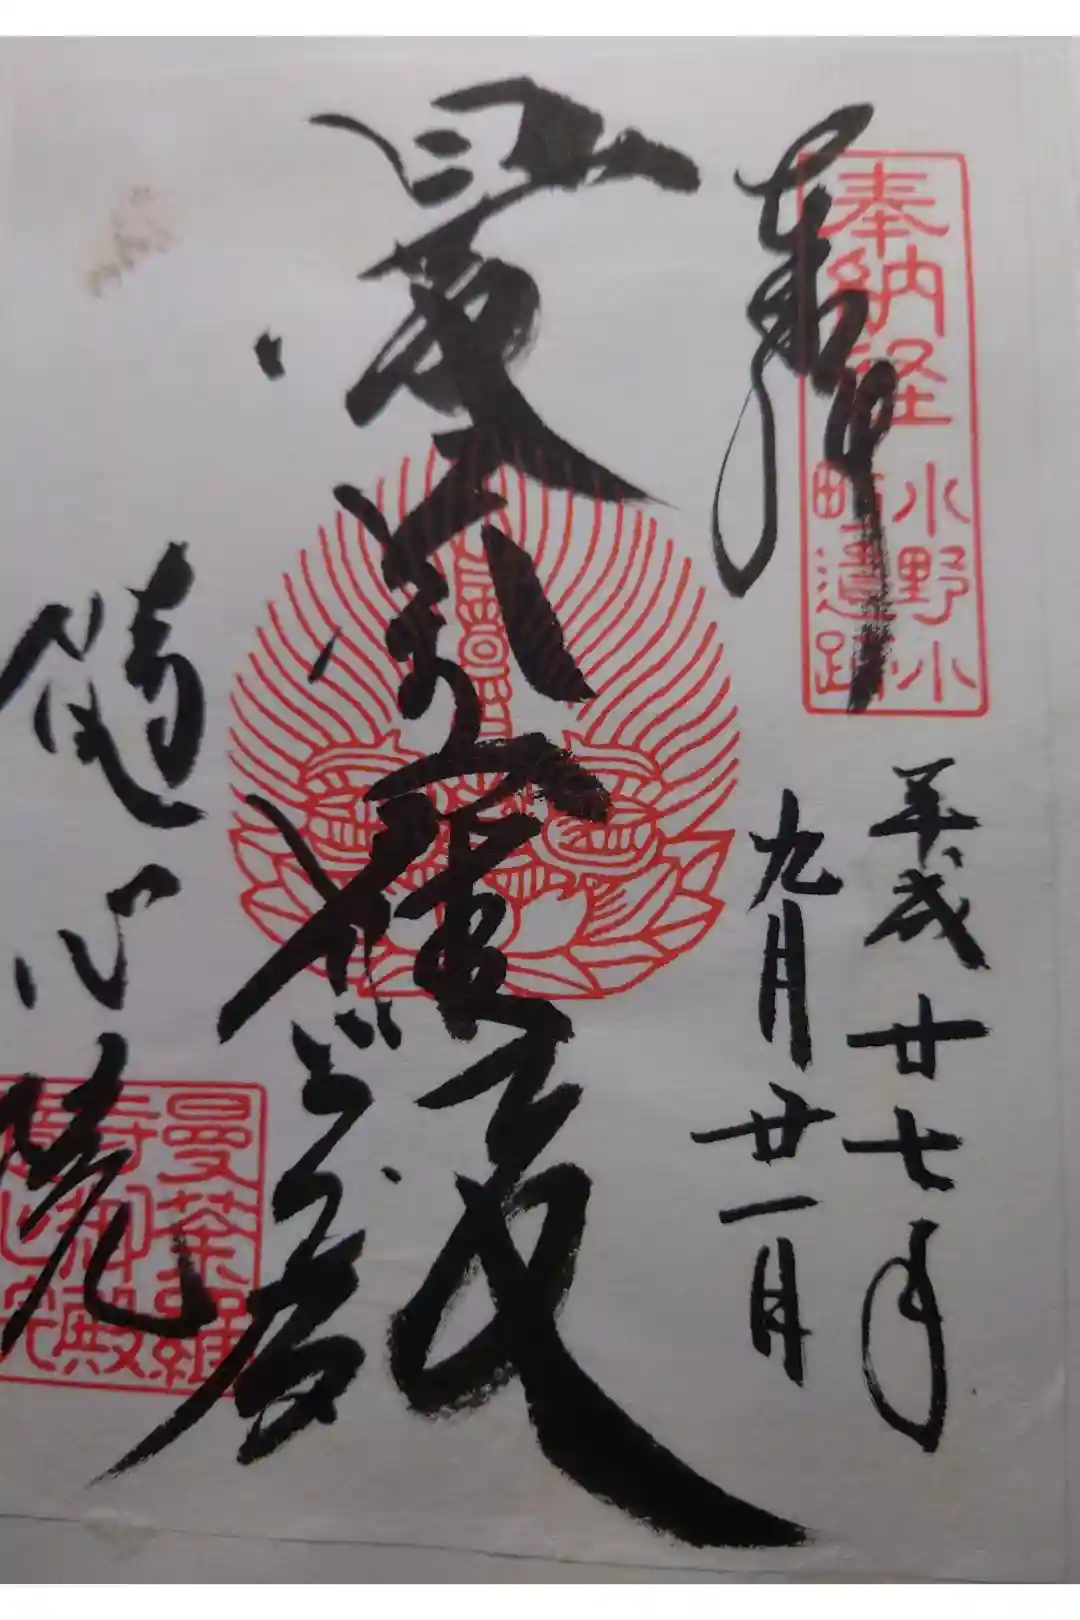 奉拝
奉納経
小野小
町遺跡
平成廿七年
九月廿一日
曼荼羅殿
随心院
曼荼羅
寺御殿